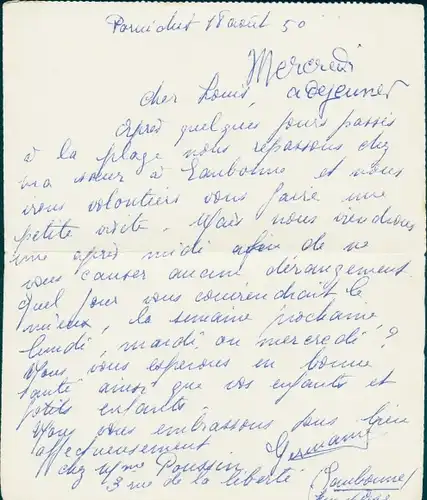 Pornichet 18 août 50
Mercredi
a dejeuner
Cher Louis,
Après quelques jours passés
à la plage nous repassons chez
ma sœur à Eaubonne et nous
irons volontiers vous faire une
petite visite. Mais nous viendrons
une après midi afin de ne
vous causer aucun dérangement.
Quel jour vous conviendrait le
mieux, la semaine prochaine
lundi, mardi, ou mercredi ?
Nous vous espérons en bonne
santé ainsi que vos enfants et
petits enfants.
Nous vous embrassons tous bien
affectueusement
Germaine
chez Mme Poussin
3 rue de la liberté
Eaubonne